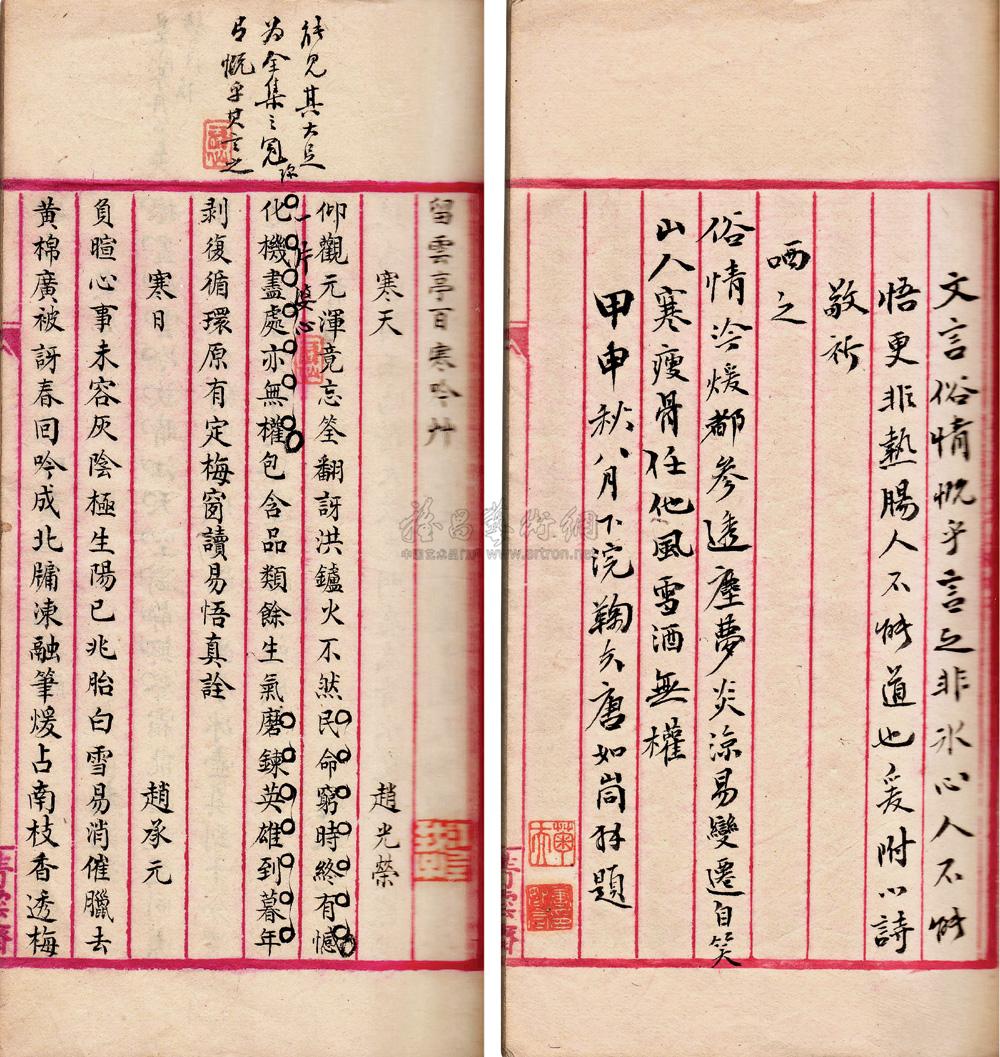 文言俗情慨乎言之非冰心人不能
悟更非熱腸人不能道也爰附以詩
敬祈
哂之
俗情冷煖都參透塵夢炎涼易變遷自笑
山人寒瘦骨任他風雪酒無權
甲申秋八月下浣鞠人唐如崗拜題
能見其大足
為全集之冠
有慨乎其言之
留雲亭百寒吟艸
寒天 趙光榮
仰觀元渾竟忘筌翻訝洪鑪火不然民命窮時終有憾
一片婆心
化機盡處亦無權包含品類餘生氣磨鍊英雄到暮年
剥復循環原有定梅窗讀易悟真詮
寒日 趙承元
負暄心事未容灰陰極生陽已兆胎白雪易消催臘去
黃棉廣被訝春回吟成北牖凍融筆煖占南枝香透梅
www.artron.net